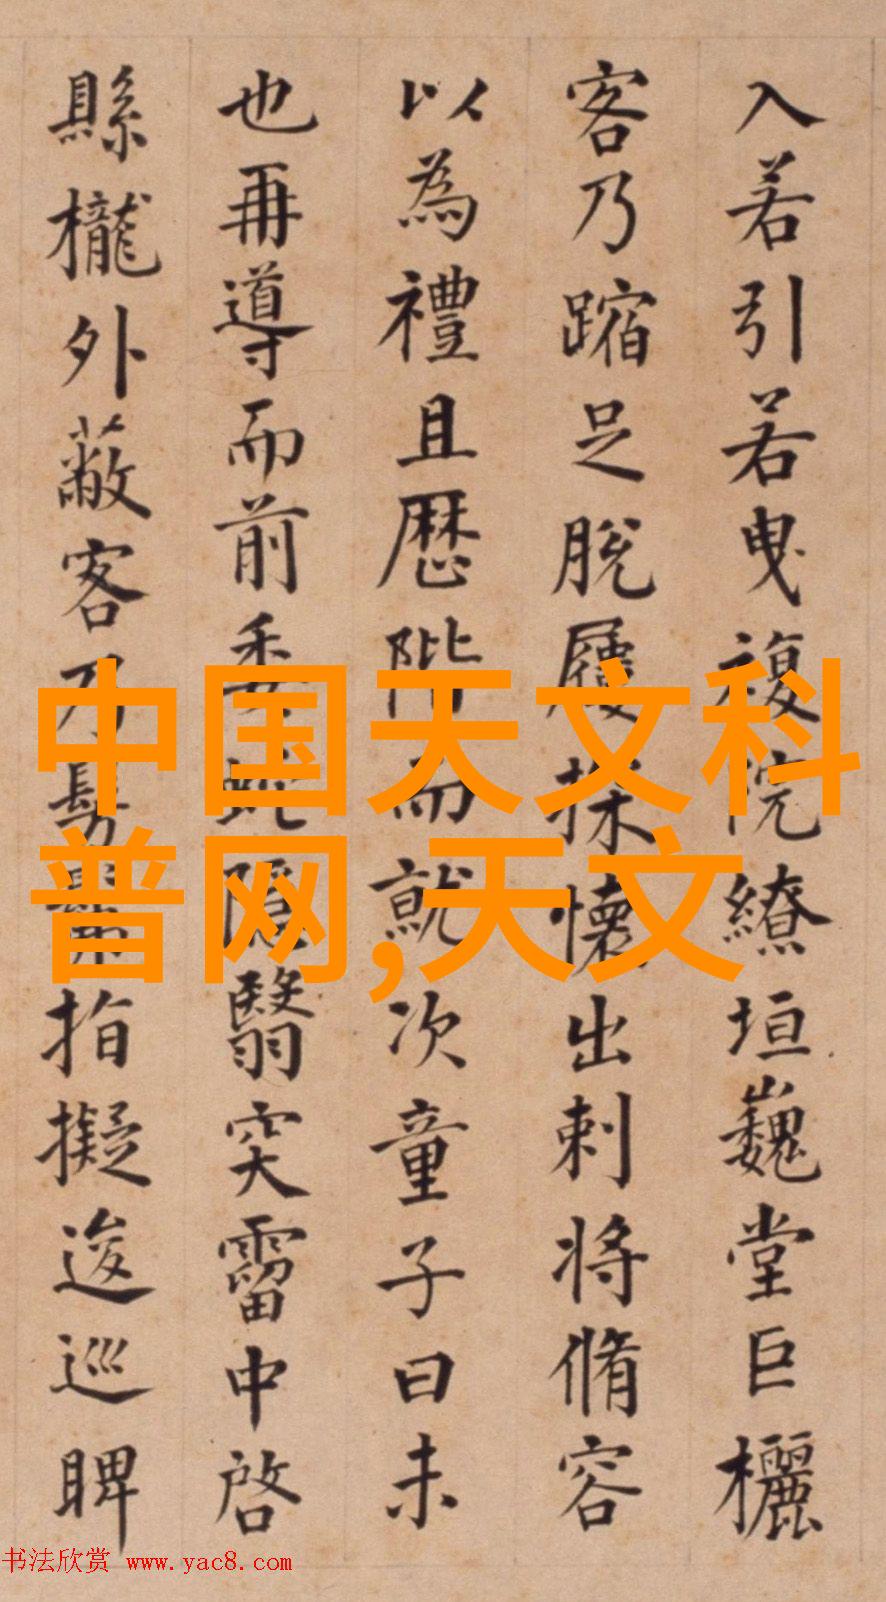 入若引若曳複院繚垣巍堂巨欐
客乃蹜足脫屨探懷出刺將脩容
以為禮且歷階而就次童子曰未
也再導而前委蛇隱翳突霤中啓
縣櫳外蔽客乃髣髴指擬逡巡睥
中国天文科
普网,天文
书法欣赏 www.yac8.com